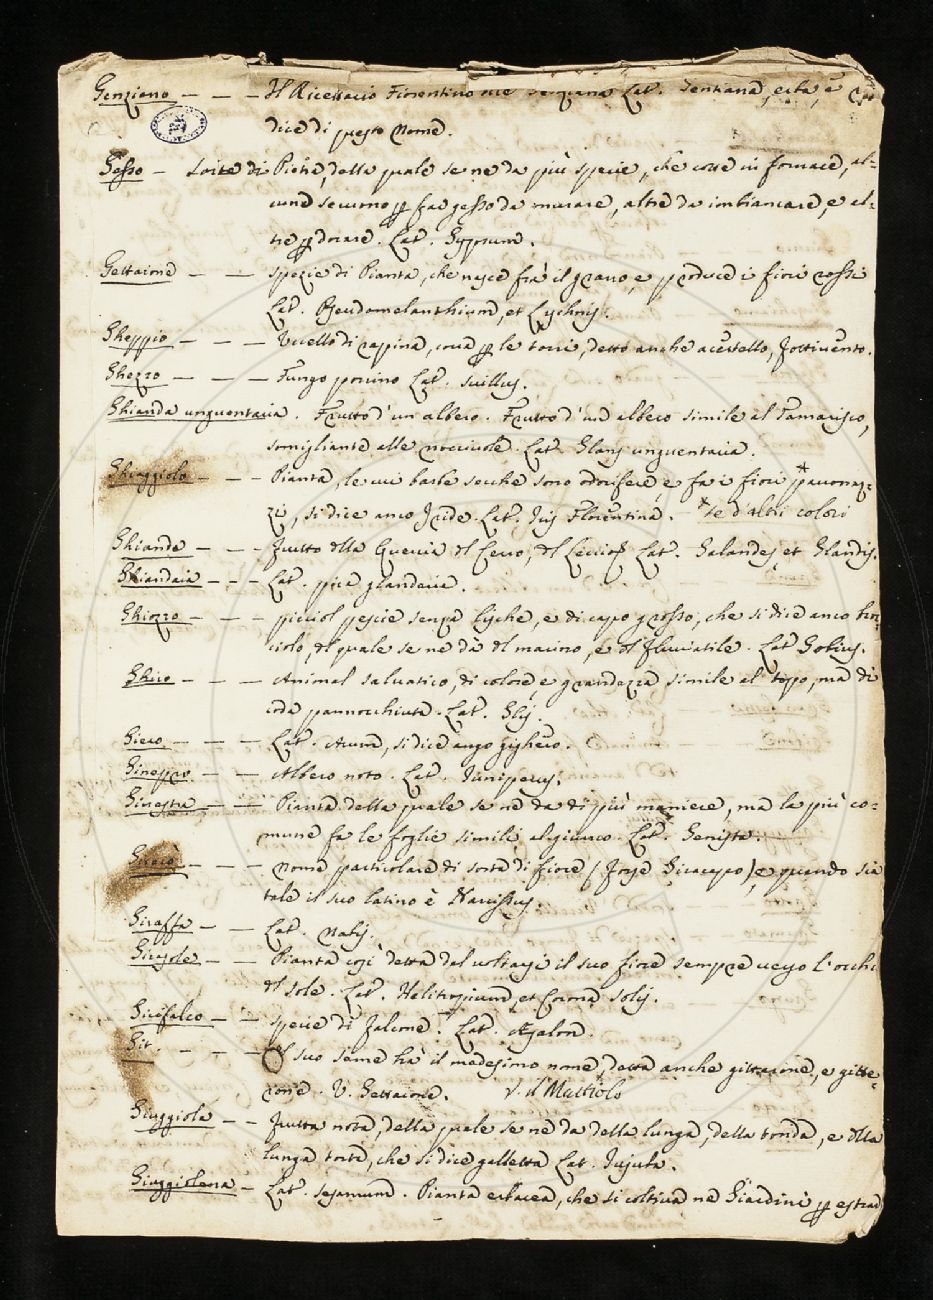 Genziana — — — Il Ricettario Fiorentino dice Lat. Gentiana, erba, e
dice di questo nome.
Gesso — Sorte di Pietra, della quale se ne da più specie, che cotte in fornace, al=
cune servono p far gesso da murare, altre da imbiancare, e al=
tre p dorare. Lat. Gypsum.
Gettaione — — spezie di Pianta, che nasce frà il grano, e produce i fiori rossi
Lat. Pseudomelanthium, et Lychnis.
Gheppio — — — Uccello di rapina, cova p le torri, detto anche acertello, fottivento.
Ghezzo — — — Fungo porcino Lat. suillus.
Ghianda unguentaria. Frutto d'un albero. Frutto d'un albero simile al Tamarisco,
somigliante alle nocciole. Lat. Glans unguentaria.
Ghiaggiolo — — — Pianta, le cui barbe secche sono odorifere, e fa i fiori * pavonaz=
zi, si dice anco Iride. Lat. Iris Florentina. * e d'altri colori
Ghianda — — — frutto della Quercia del Cerro, del Leccio Lat. Galandes et Glandis.
Ghiandaia — — — Lat. pica glandaria.
Ghiozzo — — — picciol pescie senza lische, e di capo grosso, che si dice anco
del quale se ne dà del marino, e del fluviatile. Lat Gobius.
Ghiro — — — Animal salvatico, di colore, e grandezza simile al topo, ma di
coda pannocchiuta. Lat. Glis.
Giero — — — Lat. Arum, si dice anco gighero.
Ginepro — — — Albero noto. Lat. Juniperus.
Ginestra — — Pianta della quale se ne da di più maniere, ma la più co=
mune fa le foglie simili al giunco. Lat. Genista.
— — — nome particolare di sorta di fiore (forse) e quando sia
tale il suo latino è Narcissus.
Giraffa — — Lat. nabis.
Girasole — — Pianta così detta dal voltarsi il suo fiore sempre verso l'occhio
del sole. Lat. Helitropium, et Corona solis.
Girifalco — — specie di falcone. Lat.
Git. — — — Il suo seme hà il medesimo nome, detta anche gittaione, e gitte=
rone. V. Gettaione. v. il Mattiolo
Giuggiola — — frutta nota, della quale se ne da della lunga, della tonda, e della
lunga torta, che si dice galletta Lat. Jujuba.
Giuggiolena — Lat. sesamum. Pianta erbacea, che si coltiva ne Giardini p